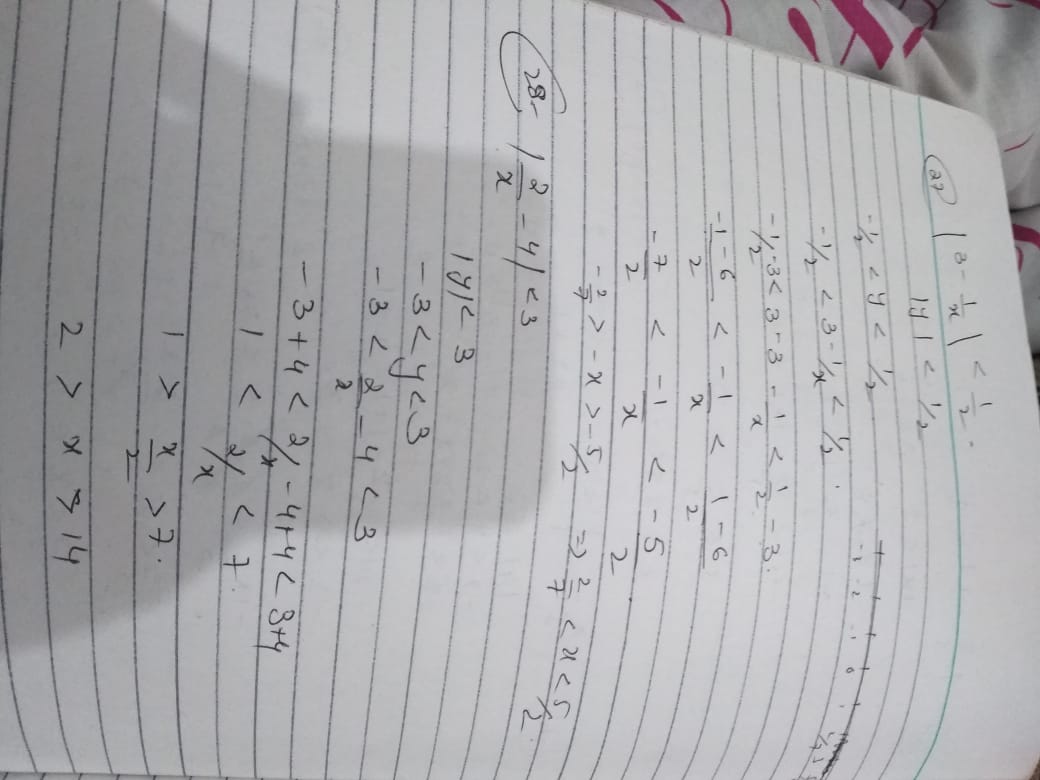 27 |3 - 1/x| < 1/2.
|y| < 1/2
-1/2 < y < 1/2
-1/2 < 3 - 1/x < 1/2.
-1/2 - 3 < 3 - 3 - 1/x < 1/2 - 3.
(-1-6)/2 < -1/x < (1-6)/2
-7/2 < -1/x < -5/2
-2/7 > -x > -5/2 ⇒ 2/7 < x < 5/2.
28. |2/x - 4| < 3
|y| < 3
-3 < y < 3
-3 < 2/x - 4 < 3
-3+4 < 2/x - 4+4 < 3+4
1 < 2/x < 7.
1 > x/2 > 7.
2 > x > 14